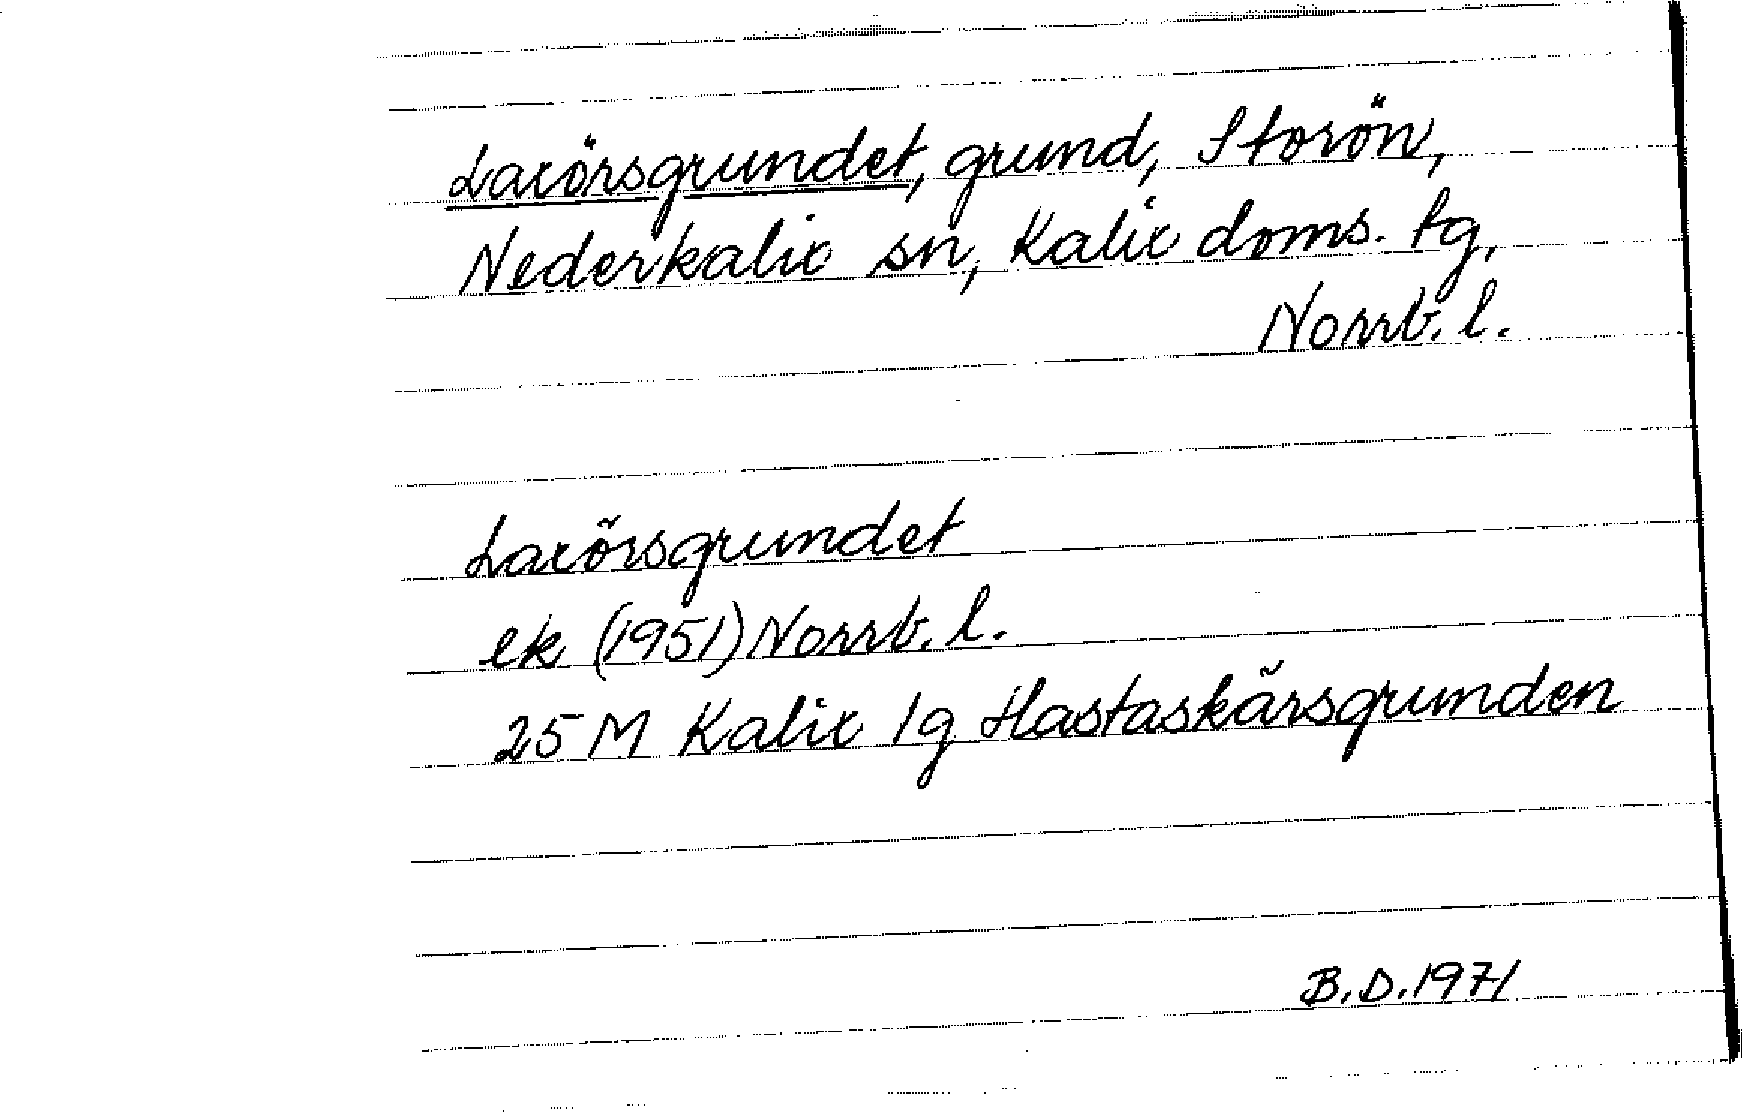 Laxörsgrundet, grund, Storön,
Nederkalix sn, Kalix doms. tg,
Norrb. l.
Laxörsgrundet
ek (1951) Norrb. l.
25 M Kalix 1g Hastaskärsgrunden
B.D. 1971